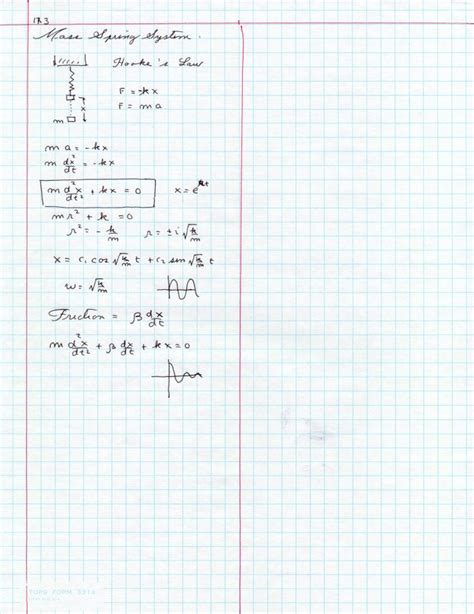 17.3
Mass Spring System.
Hooke's Law
F = -kx
F = ma
x
m
m a = -kx
m d²x/dt = -kx
m d²x/dt² + kx = 0    x = e^rt
m r² + k = 0
r² = -k/m    r = ± i √(k/m)
x = c₁ cos √(k/m) t + c₂ sin √(k/m) t
w = √(k/m)
Friction = β dx/dt
m d²x/dt² + β dx/dt + kx = 0
TOPS FORM 3316